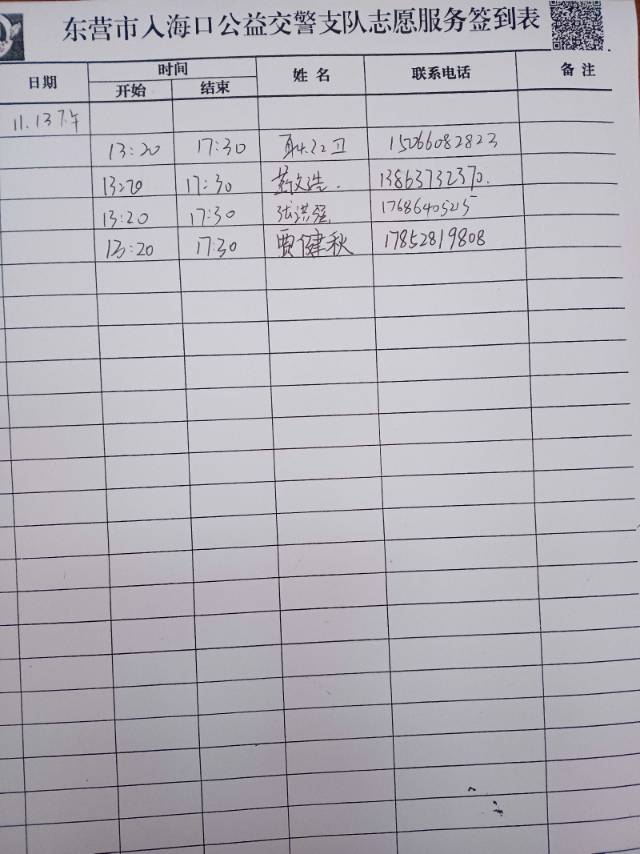 东营市入海口公益交警支队志愿服务签到表
日期 时间 姓名 联系电话 备注
开始 结束
11.13下午
13:20 17:30 耿江卫 15066082823
13:20 17:30 文浩. 13863732370.
13:20 17:30 张洪强 17686405215
13:20 17:30 贾健秋 17852819808